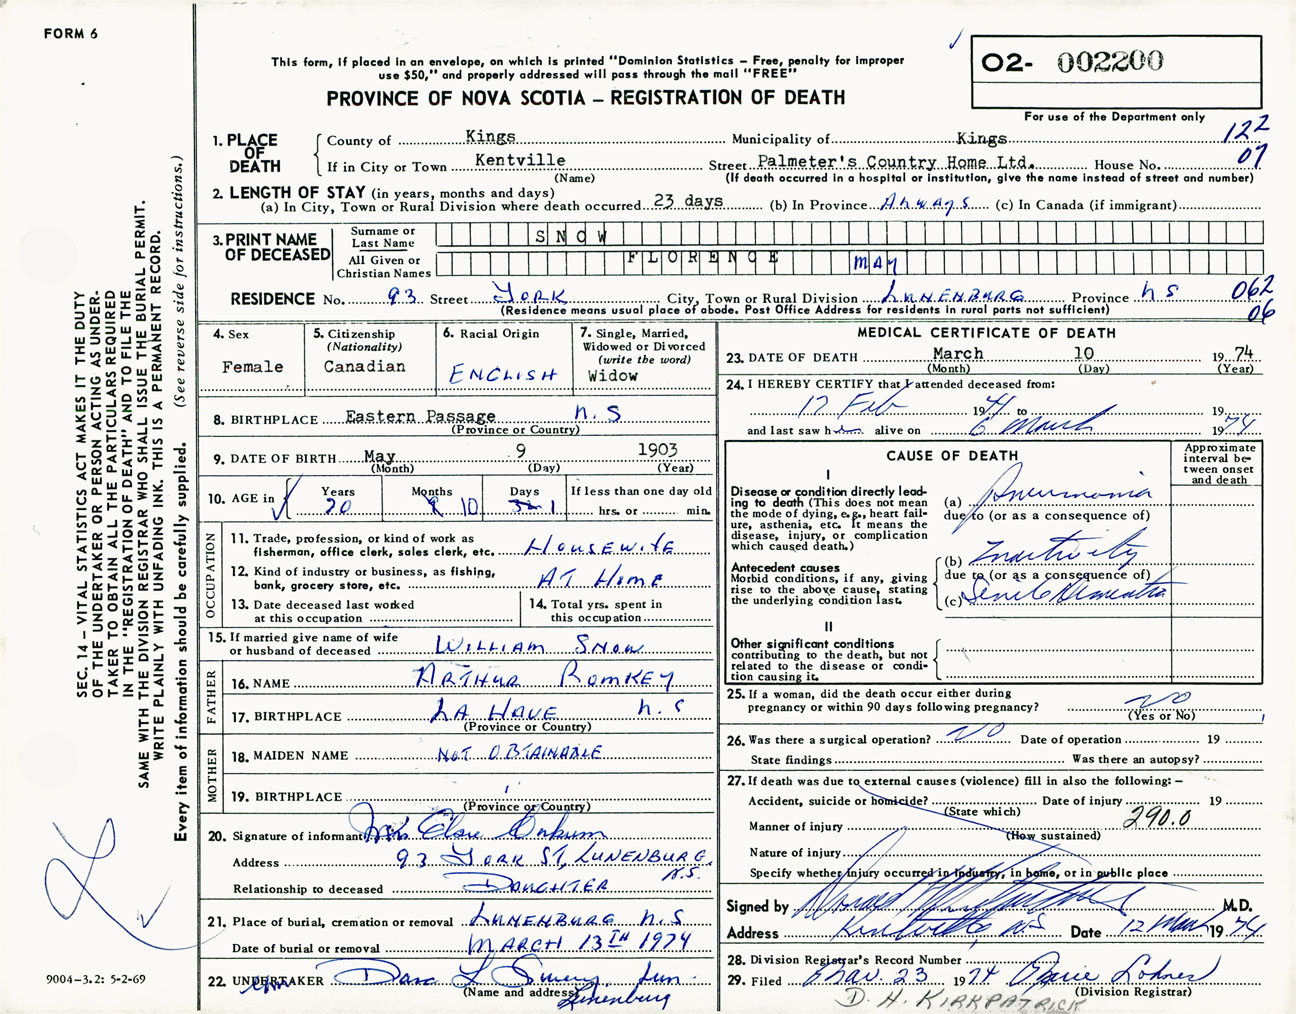 FORM 6
This form, if placed in an envelope, on which is printed "Dominion Statistics – Free, penalty for improper
use $50," and properly addressed will pass through the mail "FREE"
PROVINCE OF NOVA SCOTIA – REGISTRATION OF DEATH
O2- 002200
For use of the Department only
122
07
1. PLACE OF DEATH
County of Kings Municipality of Kings
If in City or Town Kentville Street Palmeter's Country Home Ltd. House No.
(Name) (If death occurred in a hospital or institution, give the name instead of street and number)
2. LENGTH OF STAY (in years, months and days)
(a) In City, Town or Rural Division where death occurred 23 days (b) In Province Always (c) In Canada (if immigrant)
3. PRINT NAME OF DECEASED
Surname or Last Name SNOW
All Given or Christian Names FLORENCE MAY
RESIDENCE No. 93 Street YORK City, Town or Rural Division LUNENBURG Province NS 062
(Residence means usual place of abode. Post Office Address for residents in rural parts not sufficient) 06
4. Sex
Female
5. Citizenship
(Nationality)
Canadian
6. Racial Origin
ENGLISH
7. Single, Married,
Widowed or Divorced
(write the word)
Widow
8. BIRTHPLACE Eastern Passage N.S
(Province or Country)
9. DATE OF BIRTH May 9 1903
(Month) (Day) (Year)
10. AGE in Years Months Days If less than one day old
70 10 1 hrs. or min.
OCCUPATION
11. Trade, profession, or kind of work as
fisherman, office clerk, sales clerk, etc. HOUSEWIFE
12. Kind of industry or business, as fishing,
bank, grocery store, etc. AT HOME
13. Date deceased last worked
at this occupation
14. Total yrs. spent in
this occupation
15. If married give name of wife
or husband of deceased WILLIAM SNOW
FATHER
16. NAME ARTHUR ROMKEY
17. BIRTHPLACE LA HAVE N.S
(Province or Country)
MOTHER
18. MAIDEN NAME NOT OBTAINABLE
19. BIRTHPLACE
(Province or Country)
20. Signature of informant Mrs Elsie
Address 93 YORK ST, LUNENBURG, N.S.
Relationship to deceased DAUGHTER
21. Place of burial, cremation or removal LUNENBURG N.S
Date of burial or removal MARCH 13TH 1974
22. UNDERTAKER
(Name and address) Lunenburg
MEDICAL CERTIFICATE OF DEATH
23. DATE OF DEATH March 10 1974
(Month) (Day) (Year)
24. I HEREBY CERTIFY that I attended deceased from:
17 Feb 1974 to 19
and last saw her alive on 6 March 1974
CAUSE OF DEATH
Approximate
interval be-
tween onset
and death
I
Disease or condition directly lead-
ing to death (This does not mean
the mode of dying, e.g., heart fail-
ure, asthenia, etc. It means the
disease, injury, or complication
which caused death.)
(a) Pneumonia
due to (or as a consequence of)
Antecedent causes
Morbid conditions, if any, giving
rise to the above cause, stating
the underlying condition last.
(b) Inactivity
due to (or as a consequence of)
(c) Senile Dementia
II
Other significant conditions
contributing to the death, but not
related to the disease or condi-
tion causing it.
25. If a woman, did the death occur either during
pregnancy or within 90 days following pregnancy? NO
(Yes or No)
26. Was there a surgical operation? NO Date of operation 19
State findings Was there an autopsy?
27. If death was due to external causes (violence) fill in also the following: –
Accident, suicide or homicide? Date of injury 19
(State which)
Manner of injury 290.0
(How sustained)
Nature of injury
Specify whether injury occurred in industry, in home, or in public place
Signed by M.D.
Address Kentville, N.S Date 12 March 1974
28. Division Registrar's Record Number
29. Filed Mar. 23 1974
(Division Registrar)
D. H. KIRKPATRICK
SEC. 14 – VITAL STATISTICS ACT MAKES IT THE DUTY
OF THE UNDERTAKER OR PERSON ACTING AS UNDER-
TAKER TO OBTAIN ALL THE PARTICULARS REQUIRED
IN THE "REGISTRATION OF DEATH" AND TO FILE THE
SAME WITH THE DIVISION REGISTRAR WHO SHALL ISSUE THE BURIAL PERMIT.
WRITE PLAINLY WITH UNFADING INK. THIS IS A PERMANENT RECORD.
Every item of information should be carefully supplied. (See reverse side for instructions.)
9004-3.2: 5-2-69